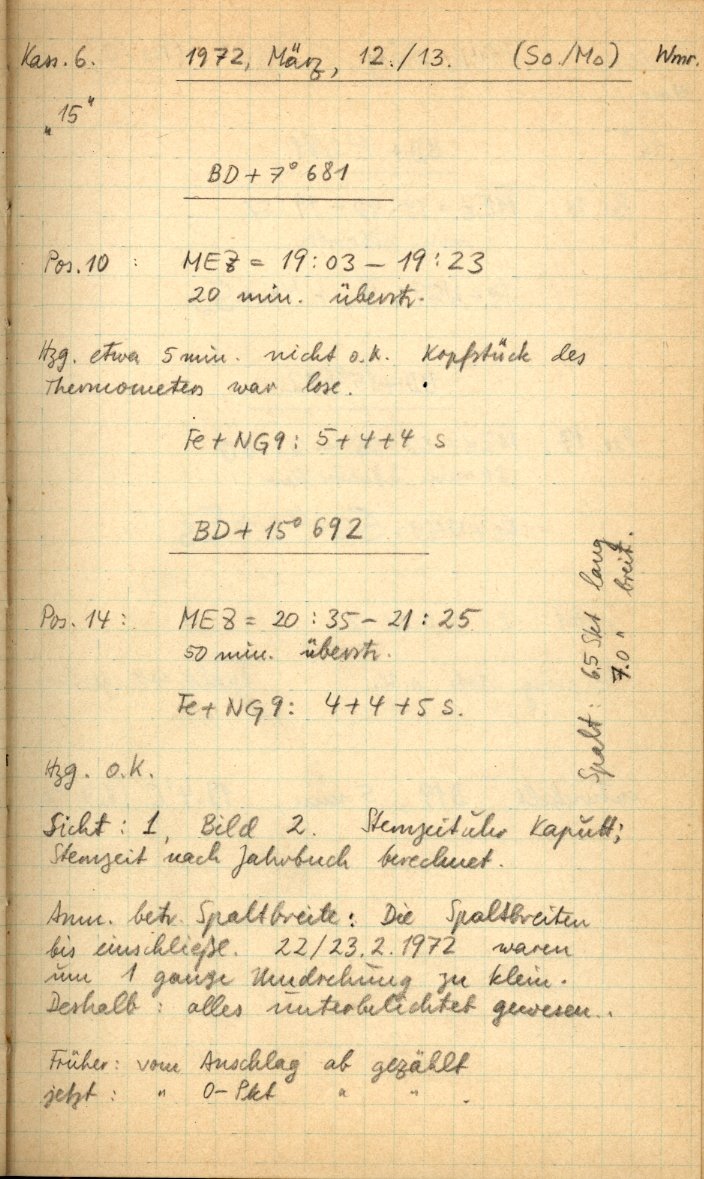 Kass. 6. 1972, März, 12./13. (So./Mo) Wmr.
"15"
BD + 7° 681
Pos. 10 : MEZ = 19:03 — 19:23
20 min. überstr.
Hzg. etwa 5 min. nicht o.k. Kopfstück des
Thermometers war lose.
Fe + NG9: 5+4+4 s
BD + 15° 692
Pos. 14 : MEZ = 20:35 — 21:25
50 min. überstr.
Fe + NG9: 4+4+5 s.
Spalt: 6,5 Skt lang
7.0 " breit.
Hzg. o.k.
Sicht: 1, Bild 2. Sternzeituhr kaputt;
Sternzeit nach Jahrbuch berechnet.
Anm. betr. Spaltbreite: Die Spaltbreiten
bis einschließl. 22/23.2.1972 waren
um 1 ganze Umdrehung zu klein.
Deshalb: alles unterbelichtet gewesen.
Früher: vom Anschlag ab gezählt
jetzt : " 0-Pkt " " .